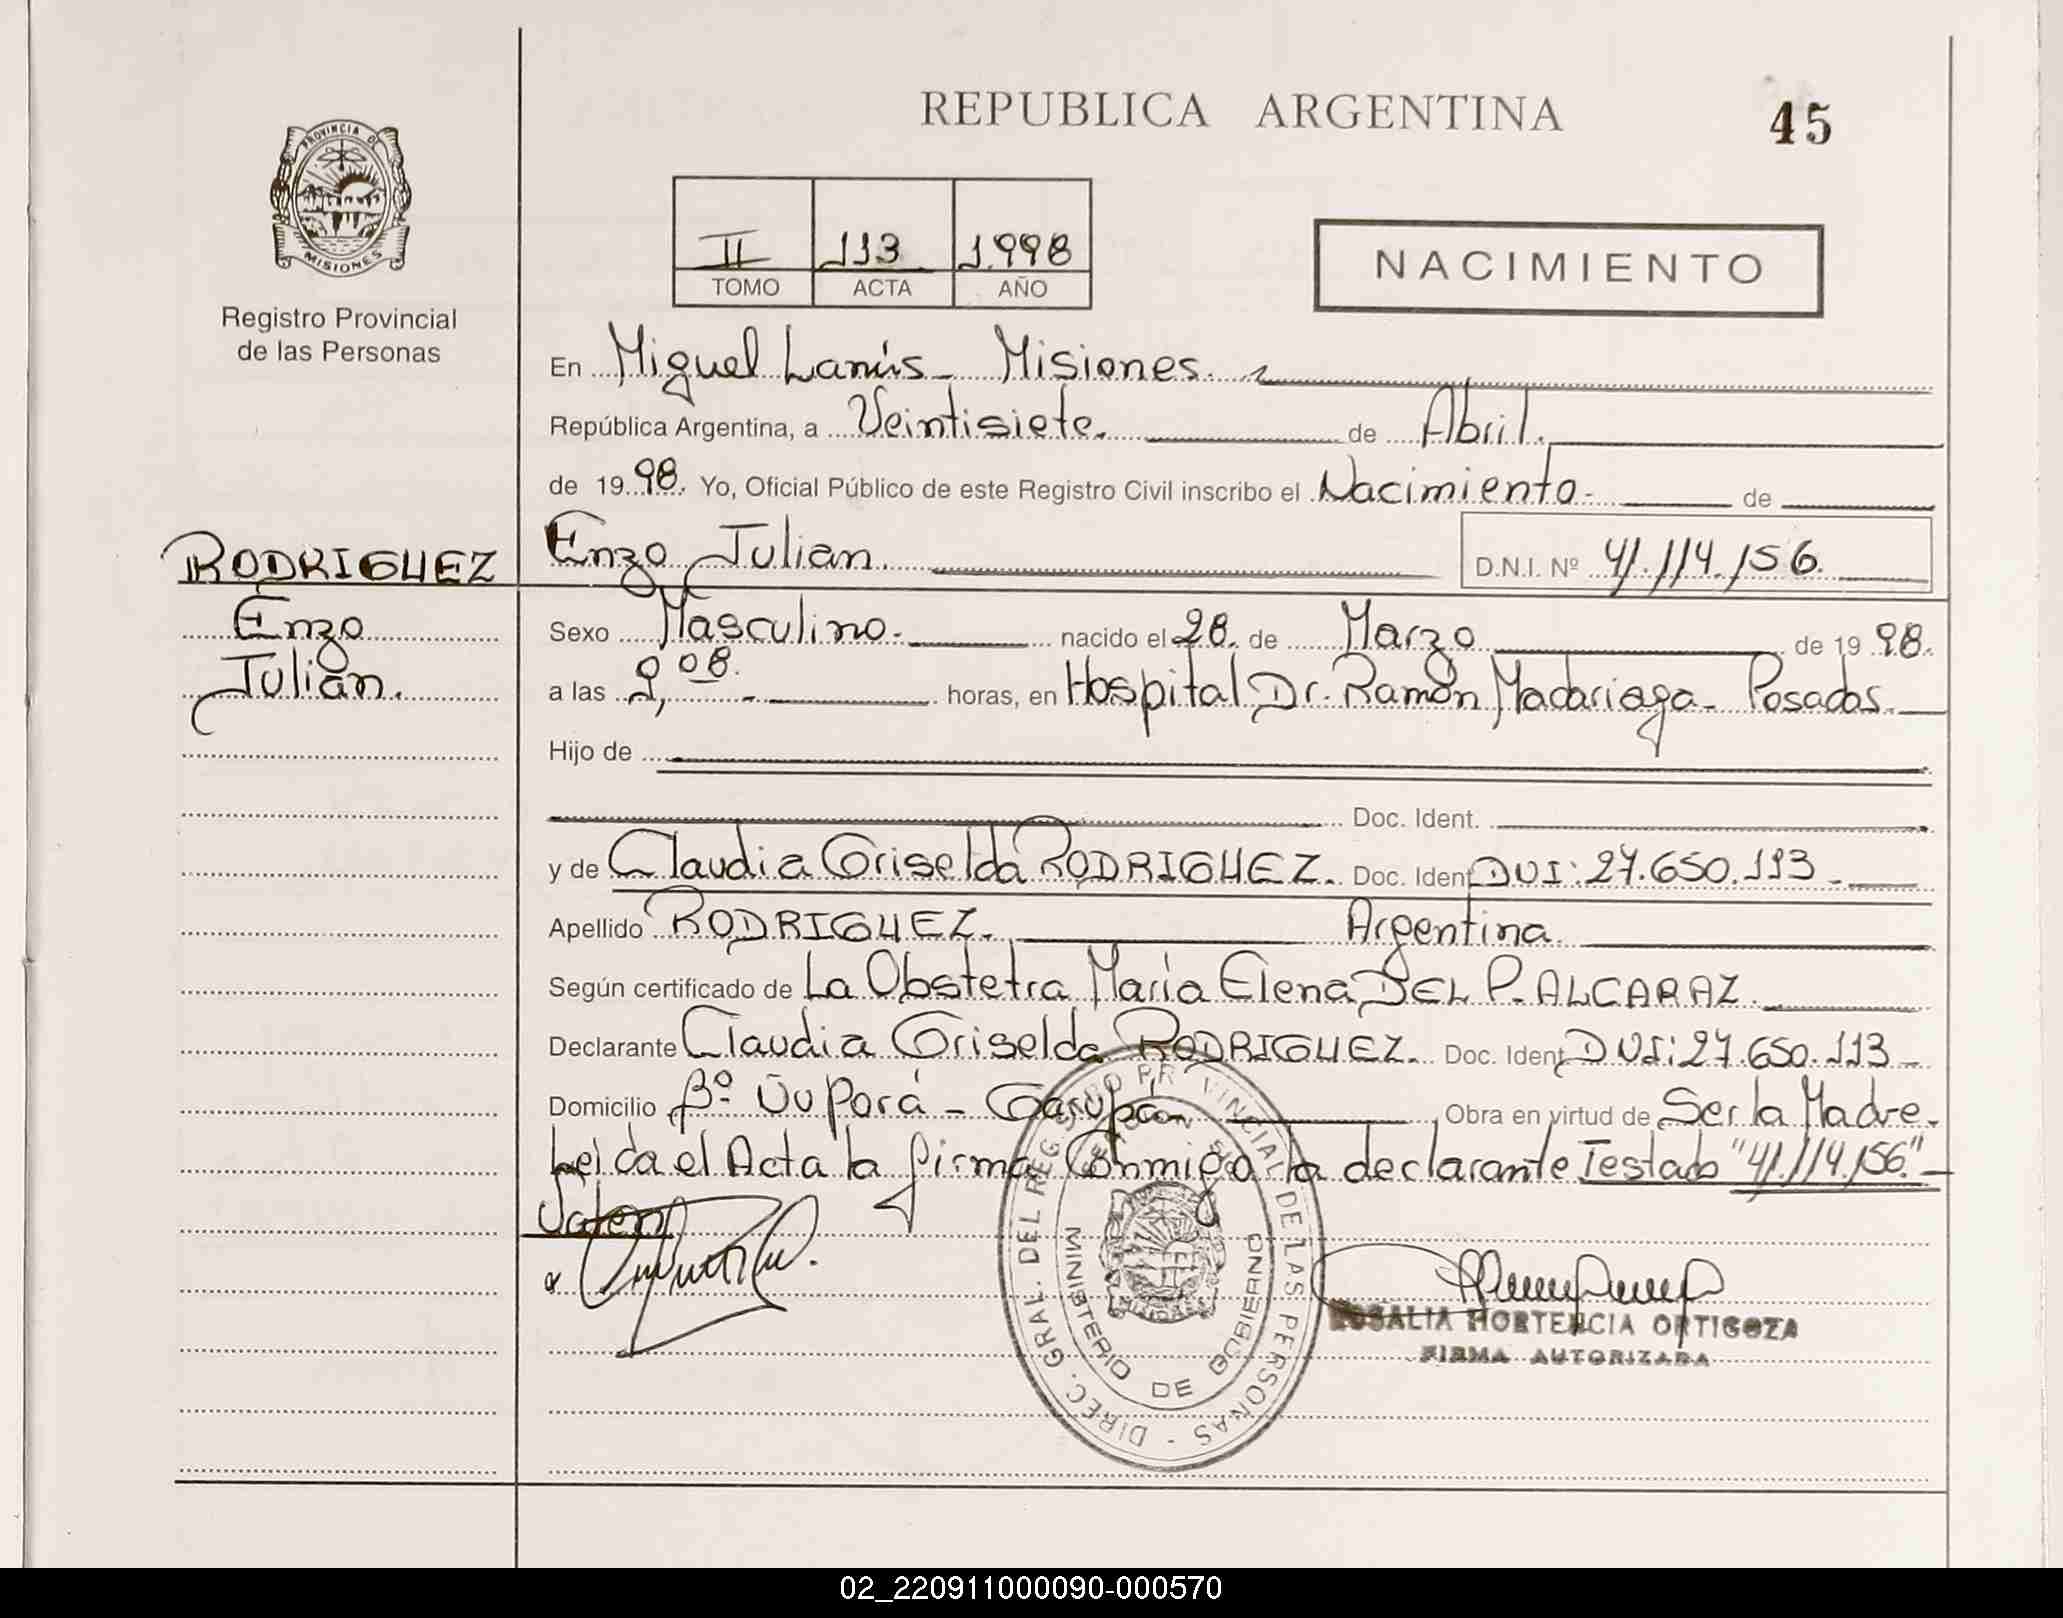 REPUBLICA ARGENTINA
45
PROVINCIA DE
MISIONES
Registro Provincial
de las Personas
II 113 1.998
TOMO ACTA AÑO
NACIMIENTO
En Miguel Lanús - Misiones.
República Argentina, a Veintisiete. de Abril.
de 19 98. Yo, Oficial Público de este Registro Civil inscribo el Nacimiento - de
RODRIGUEZ
Enzo
Julián.
Enzo Julian. D.N.I. Nº 41.114.156.
Sexo Masculino. nacido el 28. de Marzo de 19 98.
a las 9,08. - horas, en Hospital Dr. Ramón Madariaga - Posadas.
Hijo de
Doc. Ident.
y de Claudia Griselda RODRIGUEZ. Doc. Ident. DUI: 27.650.113 -
Apellido RODRIGUEZ. Argentina
Según certificado de La Obstetra María Elena DEL P. ALCARAZ
Declarante Claudia Griselda RODRIGUEZ. Doc. Ident. DUI: 27.650.113 -
Domicilio Bº Ñu Porá - Garupá - Obra en virtud de Ser la Madre.
Leida el Acta la firma Conmigo la declarante Testado "41.114.156." -
Valen
DIREC. GRAL. DEL REGISTRO PROVINCIAL DE LAS PERSONAS -
MINISTERIO DE GOBIERNO
ROSALIA HORTENCIA ORTIGOZA
FIRMA AUTORIZADA
02_220911000090-000570